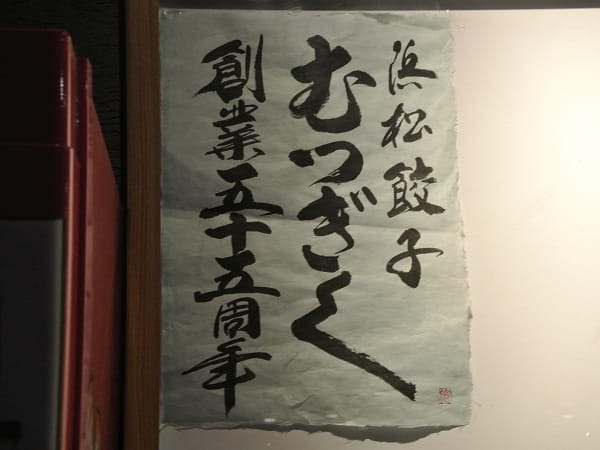 浜松餃子
むつぎく
創業五十五周年